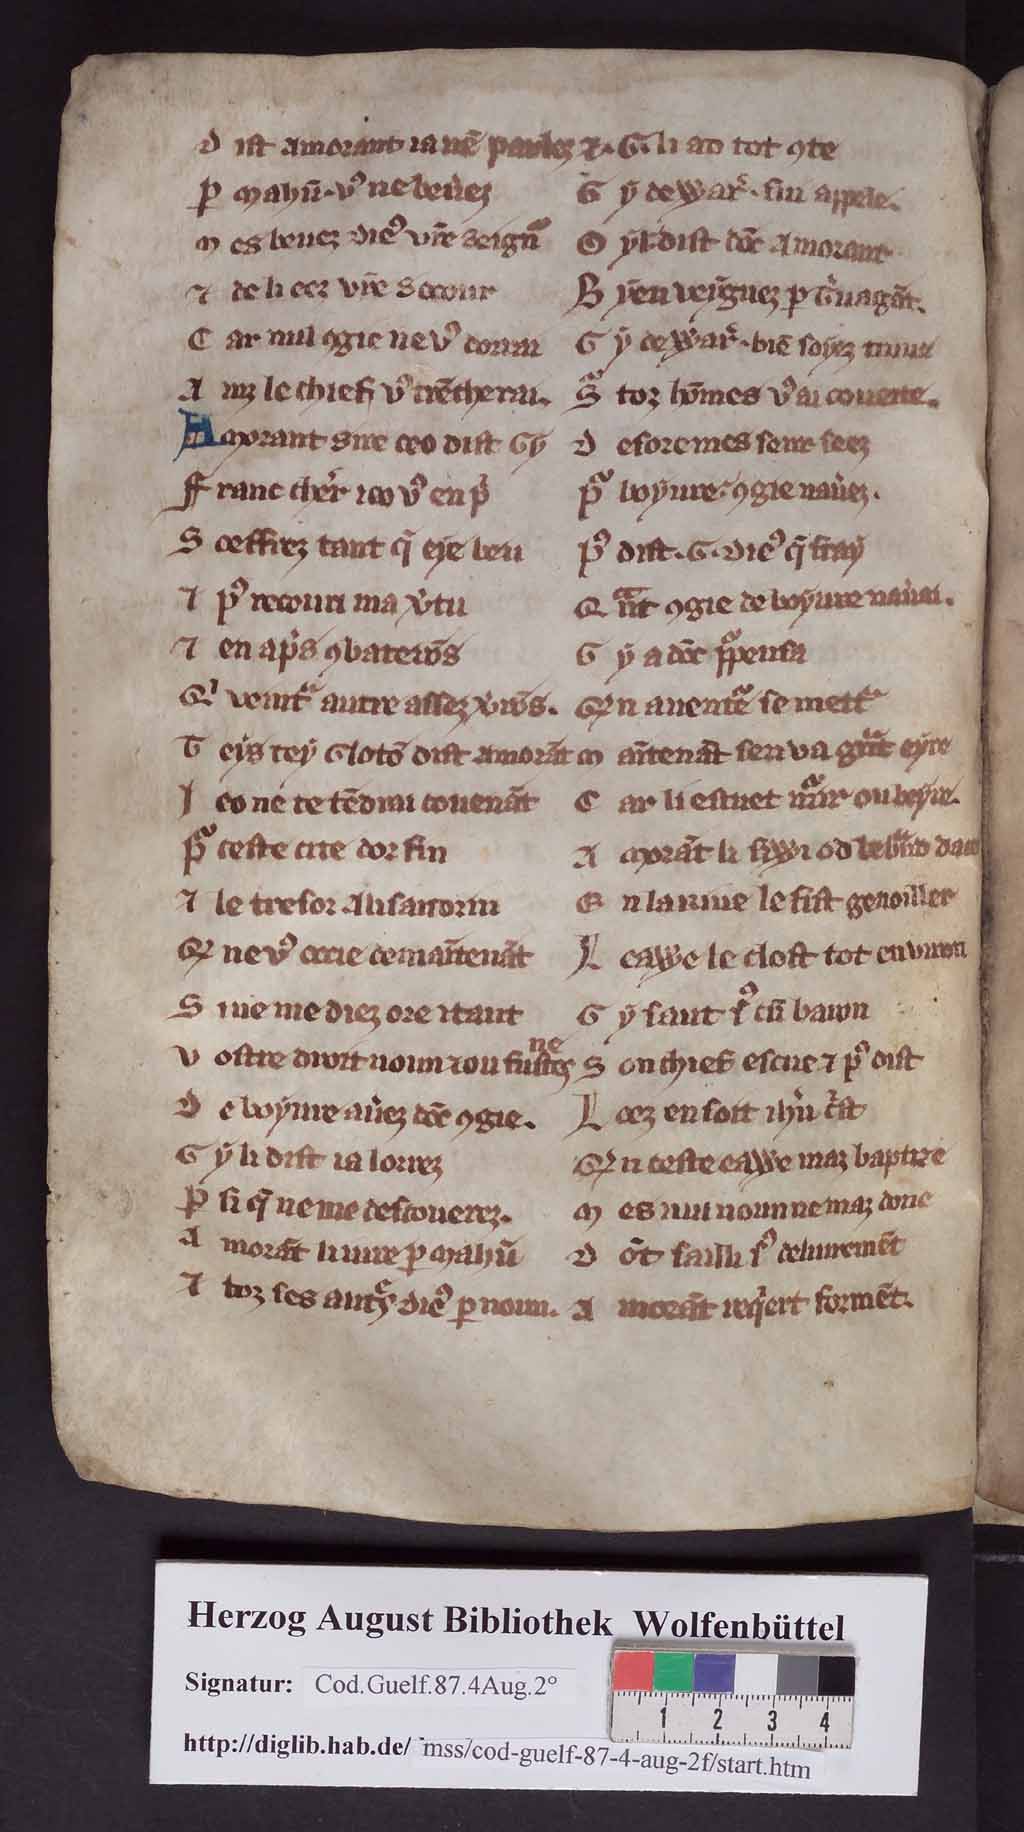 D ist Amorant ia nē parlez
ꝑ Mahū. vꝰ ne beuez
M es beuez dieꝰ vr̄e seignᵘ
⁊ de li eez vr̄e Secour
C ar nul ꝯgie ne vꝰ dorrai
A inz le chief vꝰ trēcherai.
A morant sire ceo dist Gy
F ranc cheṽr ico vꝰ en pͥ
S oeffrez tant q̄ eie beu
⁊ pꝰ recouri ma ṽtu
⁊ en ap̄s ꝯbaterōs
Qͥ veintᵃ autre assez ṽrōs.
T eis tey Glotō dist Amorāt
J eo ne te tēdrai couenāt
pᵘ ceste cite dor fin
⁊ le tresor Alisandrin
Q ne vꝰ occie demaītenāt
S ire me diez ore itaut
V ostre droit noun dou fustes
ne
D e boyure aũez dōc ꝯgie.
G y li dist ia lorrez
ꝑ si q̄ ne me descouerez.
A morāt li iure ꝑ Mahū
⁊ toz ses autˢ dieꝰ ꝑ noun.
⁊. G. li ad tot ꝯte
G y de War̄. sui appele.
O yl dist dōc Amorant
B yen veignez ꝑ T̃uagāt.
G y de War̄. biē soyez
Sᵘ toz hōmes vꝰ ai coueite.
D esoremes seur seez
pᵘ boyure ꝯgie naũez.
pꝰ dist. G. dieꝰ q̄ fray
Q ᵃnt ꝯgie de boyure naũai.
G y a dōc pᵘpensa
Q n auentᵉ se mettᵃ
M aītenāt sen va gᵃnt eyre
C ar li estuet mᵘrir ou beyre.
A morāt li siwi od le brād
E n larme le fist genoiller
L eawe le clost tot enuiron
G y saut sꝰ cū baron
S on chief escue ⁊ pꝰ dist
L oez en soit ihũ c̃st
Q n ceste eawe maz baptize
M es nul noun ne maz done
D ōt sailli sꝰ deliuremēt
A morāt reqͥert formēt.
Herzog August Bibliothek Wolfenbüttel
Signatur: Cod.Guelf.87.4Aug.2°
1 2 3 4
http://diglib.hab.de/ mss/cod-guelf-87-4-aug-2f/start.htm